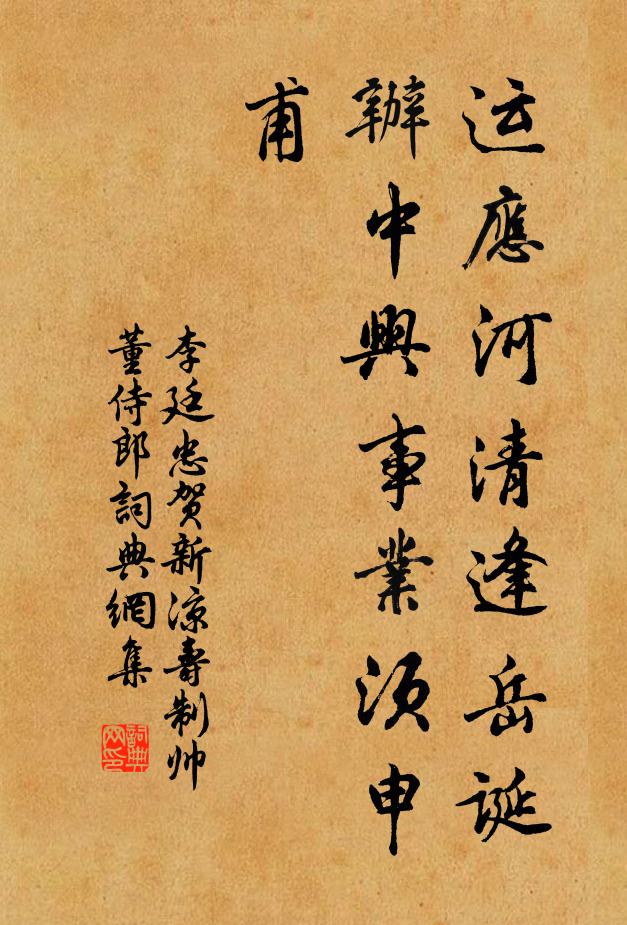 运應河清逢岳誕
辦中興事業須申
甫
李廷忠贺新凉壽制帅
董侍郎詞典網集
詞典
网印